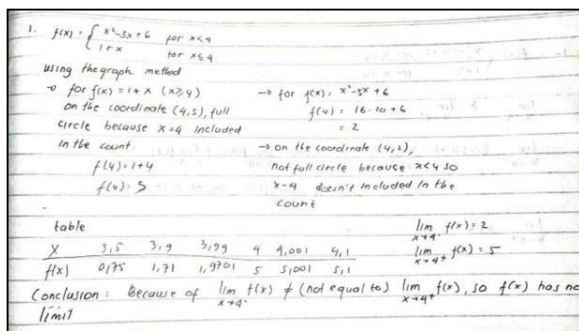 1. f(x) = { x² - 5x + 6 for x < 4
1 + x for x ≤ 4
using the graph method
→ for f(x) = 1 + x (x ≥ 4)
on the coordinate (4,5), full
circle because x = 4 included
in the count.
f(4) = 1 + 4
f(4) = 5
→ for f(x) = x² - 5x + 6
f(4) = 16 - 20 + 6
= 2
→ on the coordinate (4,2),
not full circle because x < 4 so
x = 4 doesn't included in the
count
table
x 3,5 3,9 3,99 4 4,001 4,1
f(x) 0,75 1,71 1,9701 5 5,001 5,1
lim x→4⁻ f(x) = 2
lim x→4⁺ f(x) = 5
Conclusion : Because of lim x→4⁻ f(x) ≠ (not equal to) lim x→4⁺ f(x), so f(x) has no
limit